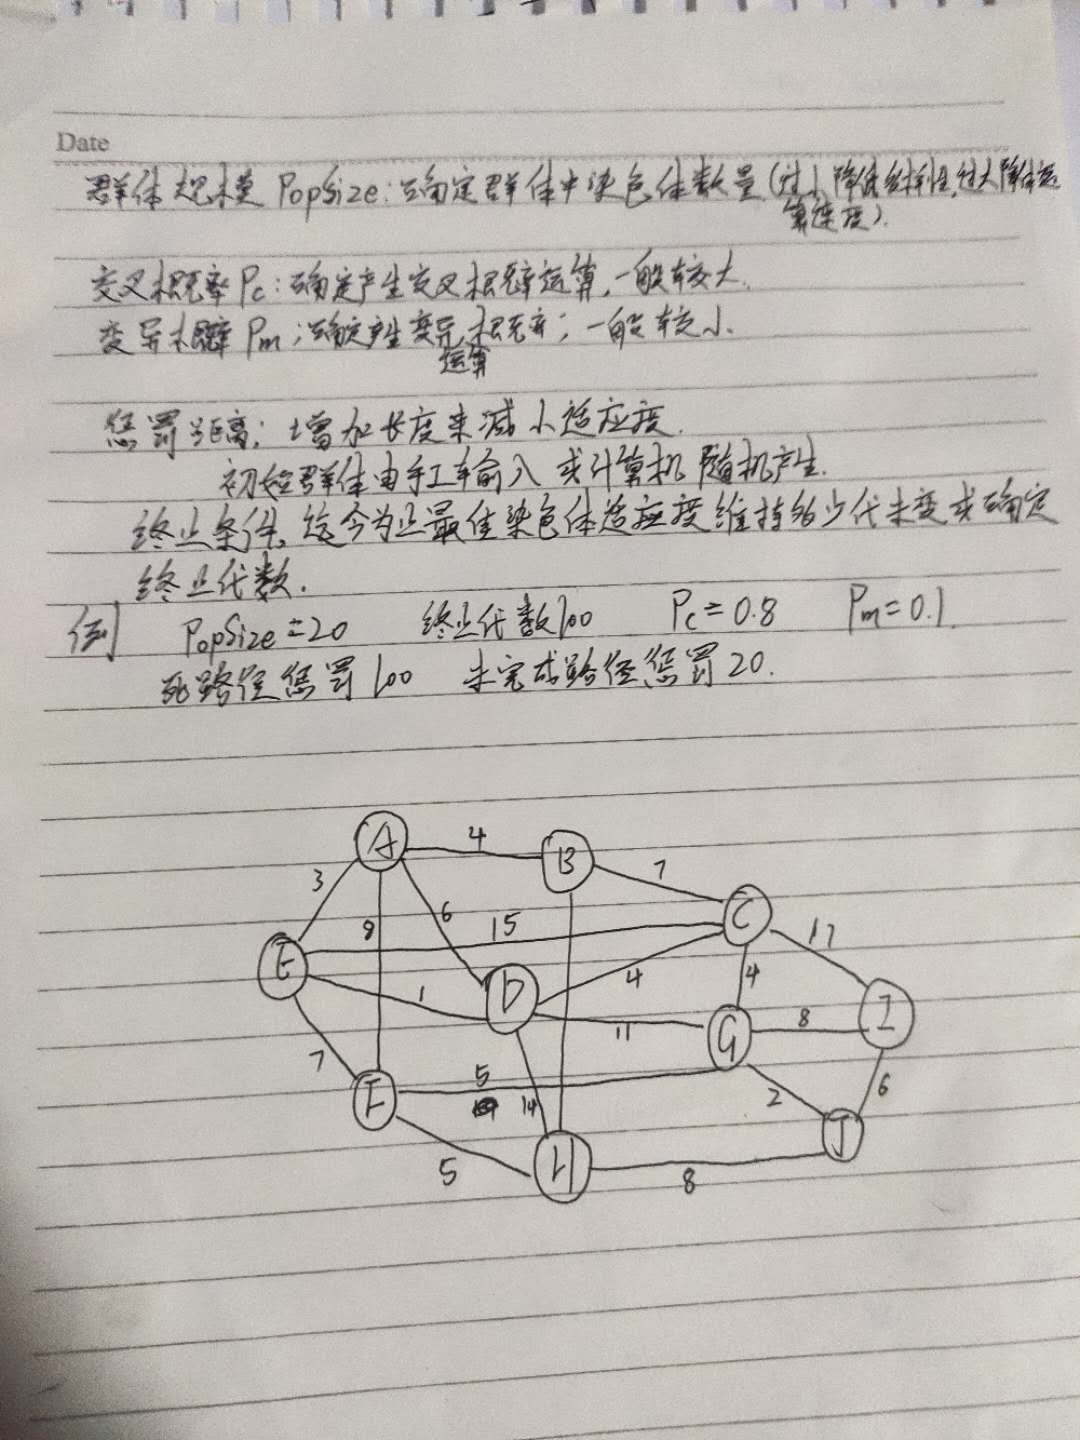 Date
群体规模 PopSize:确定群体中染色体数量(过小降低多样性,过大降低运
算速度).
交叉概率 Pc:确定产生交叉概率运算,一般较大.
变异概率 Pm;确定产生变异概率;一般较小.
运算
惩罚距离:增加长度来减小适应度.
初始群体由手工输入或计算机随机产生.
终止条件.迄今为止最佳染色体适应度维持多少代未变或确定
终止代数.
例 PopSize=20 终止代数100 Pc=0.8 Pm=0.1.
死路径惩罚100 未完成路径惩罚20.
A 4 B
3 7
9 6 15 C 17
E 4 4
1 D I
11 G 8
7 5 6
F 14 2
J
5 H 8